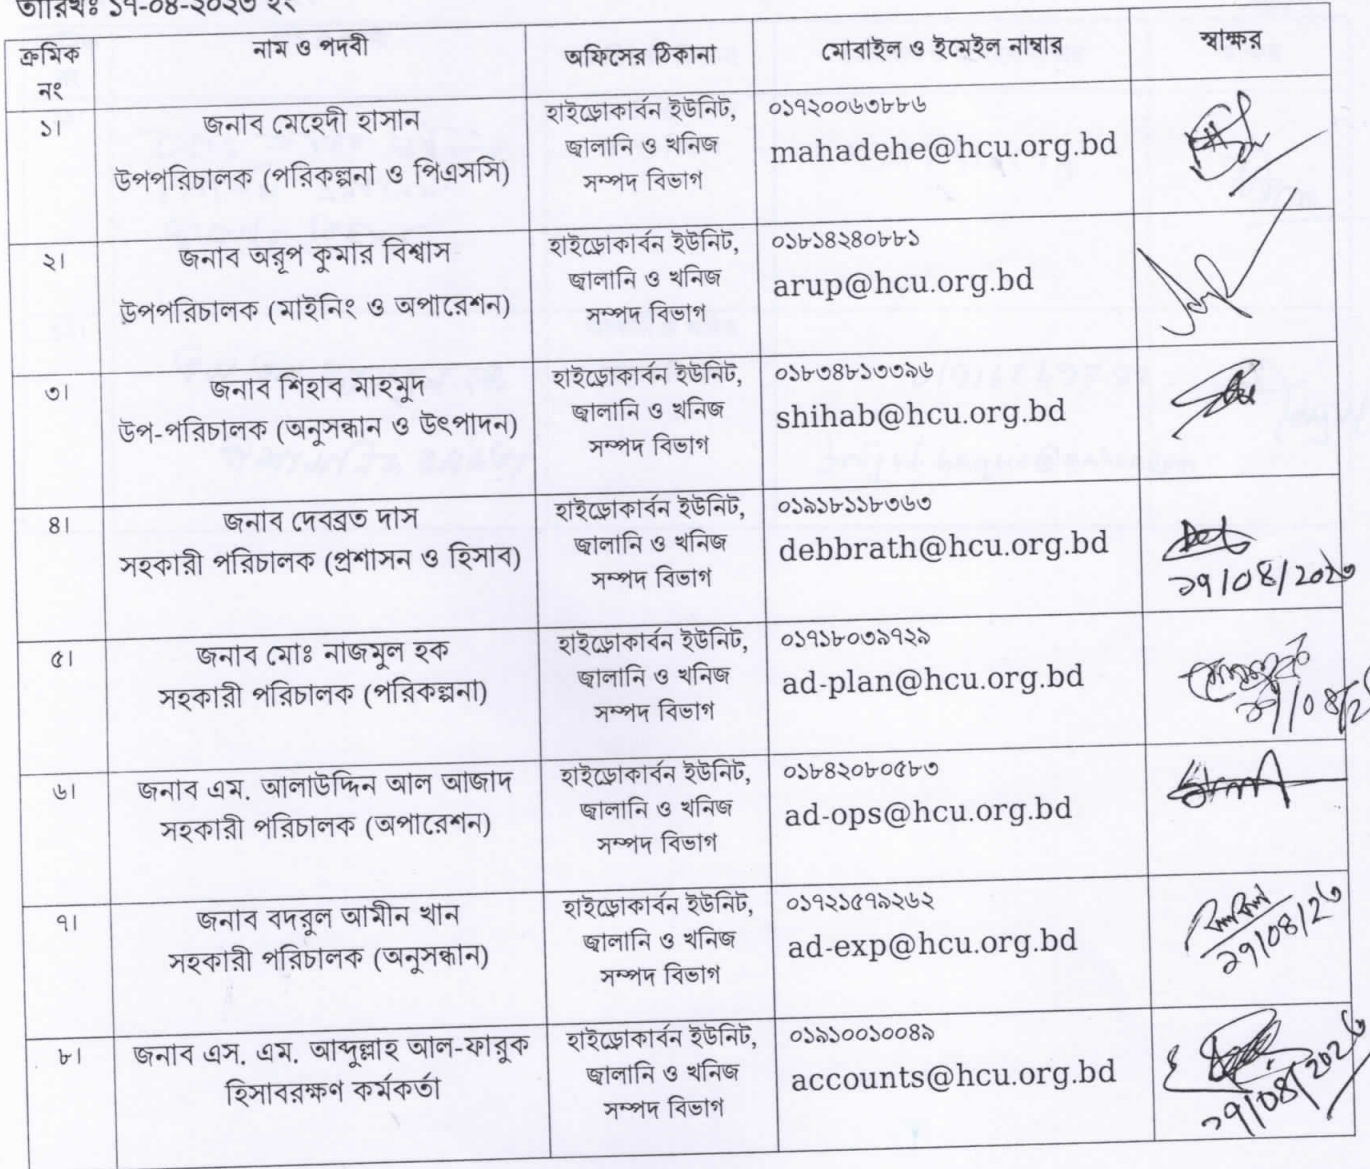 তারিখঃ ১৭-০৪-২০২৩ ইং
ক্রমিক নং
নাম ও পদবী
অফিসের ঠিকানা
মোবাইল ও ইমেইল নাম্বার
স্বাক্ষর
১।
জনাব মেহেদী হাসান
উপপরিচালক (পরিকল্পনা ও পিএসসি)
হাইড্রোকার্বন ইউনিট,
জ্বালানি ও খনিজ
সম্পদ বিভাগ
০১৭২০০৬৩৮৮৬
mahadehe@hcu.org.bd
২।
জনাব অরূপ কুমার বিশ্বাস
উপপরিচালক (মাইনিং ও অপারেশন)
হাইড্রোকার্বন ইউনিট,
জ্বালানি ও খনিজ
সম্পদ বিভাগ
০১৮১৪২৪০৮৮১
arup@hcu.org.bd
৩।
জনাব শিহাব মাহমুদ
উপ-পরিচালক (অনুসন্ধান ও উৎপাদন)
হাইড্রোকার্বন ইউনিট,
জ্বালানি ও খনিজ
সম্পদ বিভাগ
০১৮৩৪৮১৩৩৯৬
shihab@hcu.org.bd
৪।
জনাব দেবব্রত দাস
সহকারী পরিচালক (প্রশাসন ও হিসাব)
হাইড্রোকার্বন ইউনিট,
জ্বালানি ও খনিজ
সম্পদ বিভাগ
০১৯১৮১১৮৩৬৩
debbrath@hcu.org.bd
১৭/০৪/২০২৩
৫।
জনাব মোঃ নাজমুল হক
সহকারী পরিচালক (পরিকল্পনা)
হাইড্রোকার্বন ইউনিট,
জ্বালানি ও খনিজ
সম্পদ বিভাগ
০১৭১৮০৩৯৭২৯
ad-plan@hcu.org.bd
৬।
জনাব এম. আলাউদ্দিন আল আজাদ
সহকারী পরিচালক (অপারেশন)
হাইড্রোকার্বন ইউনিট,
জ্বালানি ও খনিজ
সম্পদ বিভাগ
০১৮৪২০৮০৫৮৩
ad-ops@hcu.org.bd
৭।
জনাব বদরুল আমীন খান
সহকারী পরিচালক (অনুসন্ধান)
হাইড্রোকার্বন ইউনিট,
জ্বালানি ও খনিজ
সম্পদ বিভাগ
০১৭২১৫৭৯২৬২
ad-exp@hcu.org.bd
১৭/০৪/২৩
৮।
জনাব এস. এম. আব্দুল্লাহ আল-ফারুক
হিসাবরক্ষণ কর্মকর্তা
হাইড্রোকার্বন ইউনিট,
জ্বালানি ও খনিজ
সম্পদ বিভাগ
০১৯১০০১০০৪৯
accounts@hcu.org.bd
১৭/০৪/২০২৩